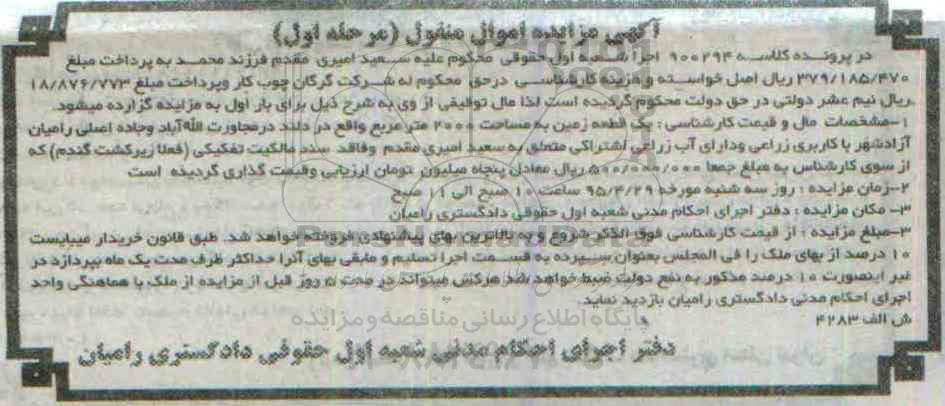 آگهی مزایده اموال منقول (مرحله اول)
در پرونده کلاسه ۹۰۰۲۹۴ اجرا شعبه اول حقوقی محکوم علیه سعید امیری مقدم فرزند محمد به پرداخت مبلغ
۳۷۹/۱۸۵/۴۷۰ ریال اصل خواسته و هزینه کارشناسی درحق محکوم له شرکت گرگان چوب کار وپرداخت مبلغ ۱۸/۸۷۶/۷۷۳
ریال نیم عشر دولتی در حق دولت محکوم گردیده است لذا مال توقیفی از وی به شرح ذیل برای بار اول به مزایده گزارده میشود.
۱-مشخصات مال و قیمت کارشناسی : یک قطعه زمین به مساحت ۲۰۰۰ متر مربع واقع در دلند درمجاورت الله‌آباد وجاده اصلی رامیان
آزادشهر با کاربری زراعی ودارای آب زراعی اشتراکی متعلق به سعید امیری مقدم وفاقد سند مالکیت تفکیکی (فعلا زیرکشت گندم) که
از سوی کارشناس به مبلغ جمعا ۵۰۰/۰۰۰/۰۰۰ ریال معادل پنجاه میلیون تومان ارزیابی وقیمت گذاری گردیده است
۲-زمان مزایده : روز سه شنبه مورخه ۹۵/۴/۲۹ ساعت ۱۰ صبح الی ۱۱ صبح
۳- مکان مزایده : دفتر اجرای احکام مدنی شعبه اول حقوقی دادگستری رامیان
۳-مبلغ مزایده : از قیمت کارشناسی فوق الذکر شروع و به بالاترین بهای پیشنهادی فروخته خواهد شد. طبق قانون خریدار میبایست
۱۰ درصد از بهای ملک را فی المجلس بعنوان سپرده به قسمت اجرا تسلیم و مابقی بهای آنرا حداکثر ظرف مدت یک ماه بپردازد در
غیر اینصورت ۱۰ درصد مذکور به نفع دولت ضبط خواهد شد هرکس میتواند در مدت ۵ روز قبل از مزایده از ملک با هماهنگی واحد
اجرای احکام مدنی دادگستری رامیان بازدید نماید.
ش الف ۴۲۸۳
پایگاه اطلاع رسانی مناقصه و مزایده
دفتر اجرای احکام مدنی شعبه اول حقوقی دادگستری رامیان